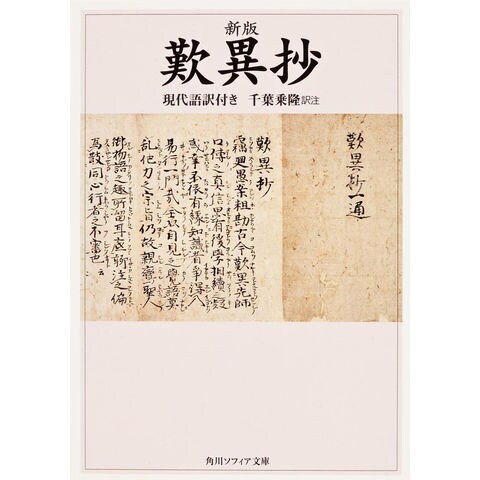 新版
歎異抄
現代語訳付き 千葉乗隆 訳注
歎異抄一通
歎異抄
竊廻愚案粗勘古今歎異先師
口傳之真信思有後學相續之疑
惑幸不依有縁知識者争得入
易行一門哉全以自見之覺語莫
乱他力之宗旨仍故親鸞聖人
御物語之趣所留耳底聊注之偏
為散同心行者之不審也 云々
角川ソフィア文庫